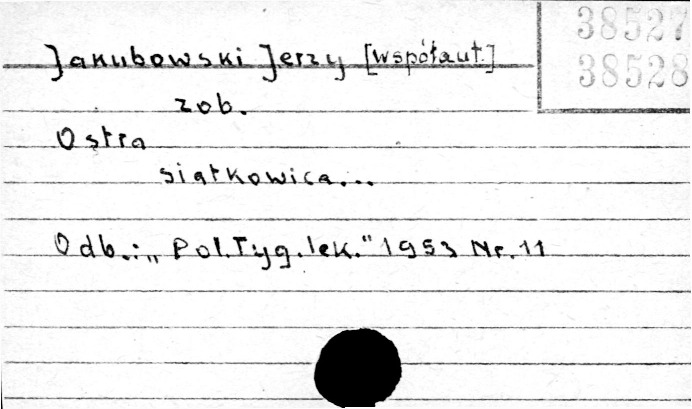 38527
38528
Jakubowski Jerzy [współaut.]
zob.
Ostra
siatkowica...
Odb.: „Pol.Tyg.lek." 1953 Nr.11